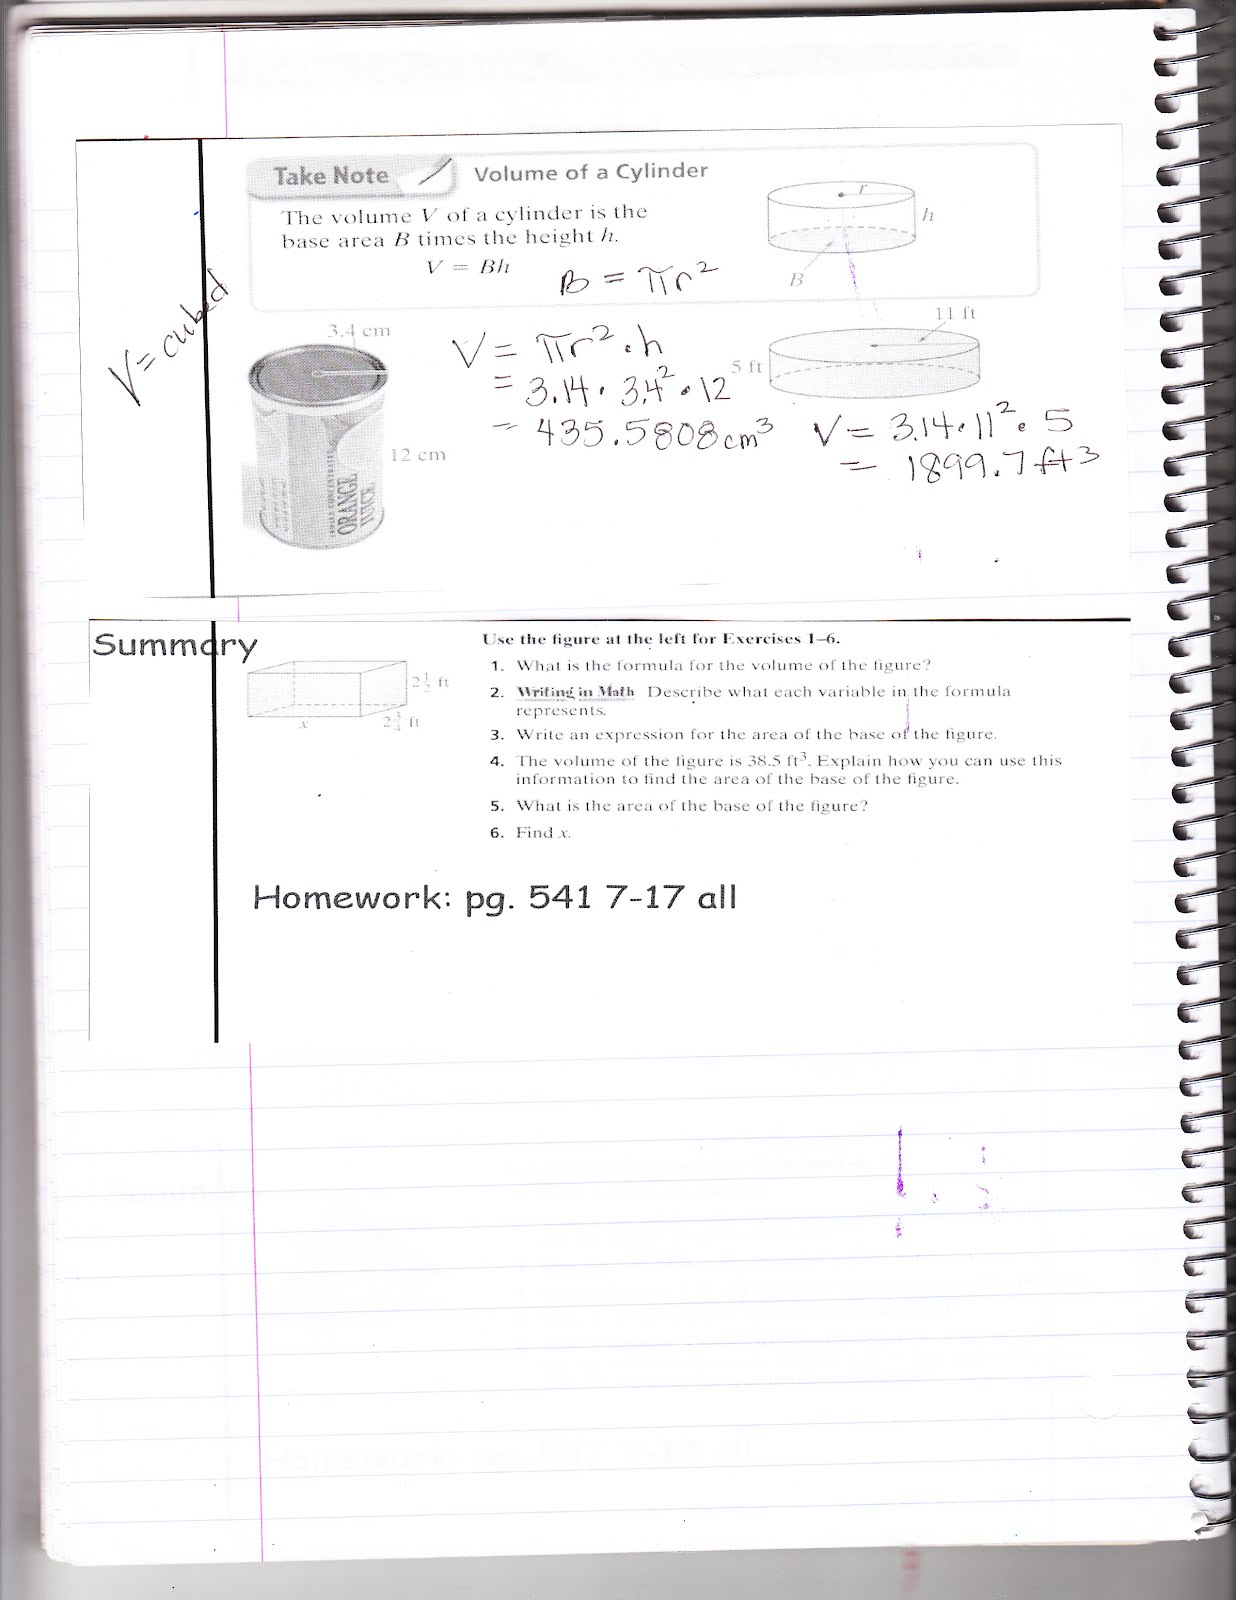 Take Note
Volume of a Cylinder
The volume V of a cylinder is the
base area B times the height h.
V = Bh
B = πr²
r
h
B
V = cubed
3.4 cm
12 cm
ORANGE
JUICE
V = πr² · h
= 3.14 · 3.4² · 12
= 435.5808 cm³
11 ft
5 ft
V = 3.14 · 11² · 5
= 1899.7 ft³
Summary
2 1/2 ft
x
2 3/4 ft
Use the figure at the left for Exercises 1–6.
1. What is the formula for the volume of the figure?
2. Writing in Math Describe what each variable in the formula
represents.
3. Write an expression for the area of the base of the figure.
4. The volume of the figure is 38.5 ft³. Explain how you can use this
information to find the area of the base of the figure.
5. What is the area of the base of the figure?
6. Find x.
Homework: pg. 541 7-17 all